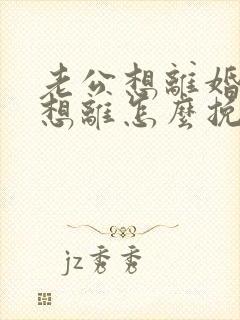 老公想離婚
想離怎麼挽
jz秀秀